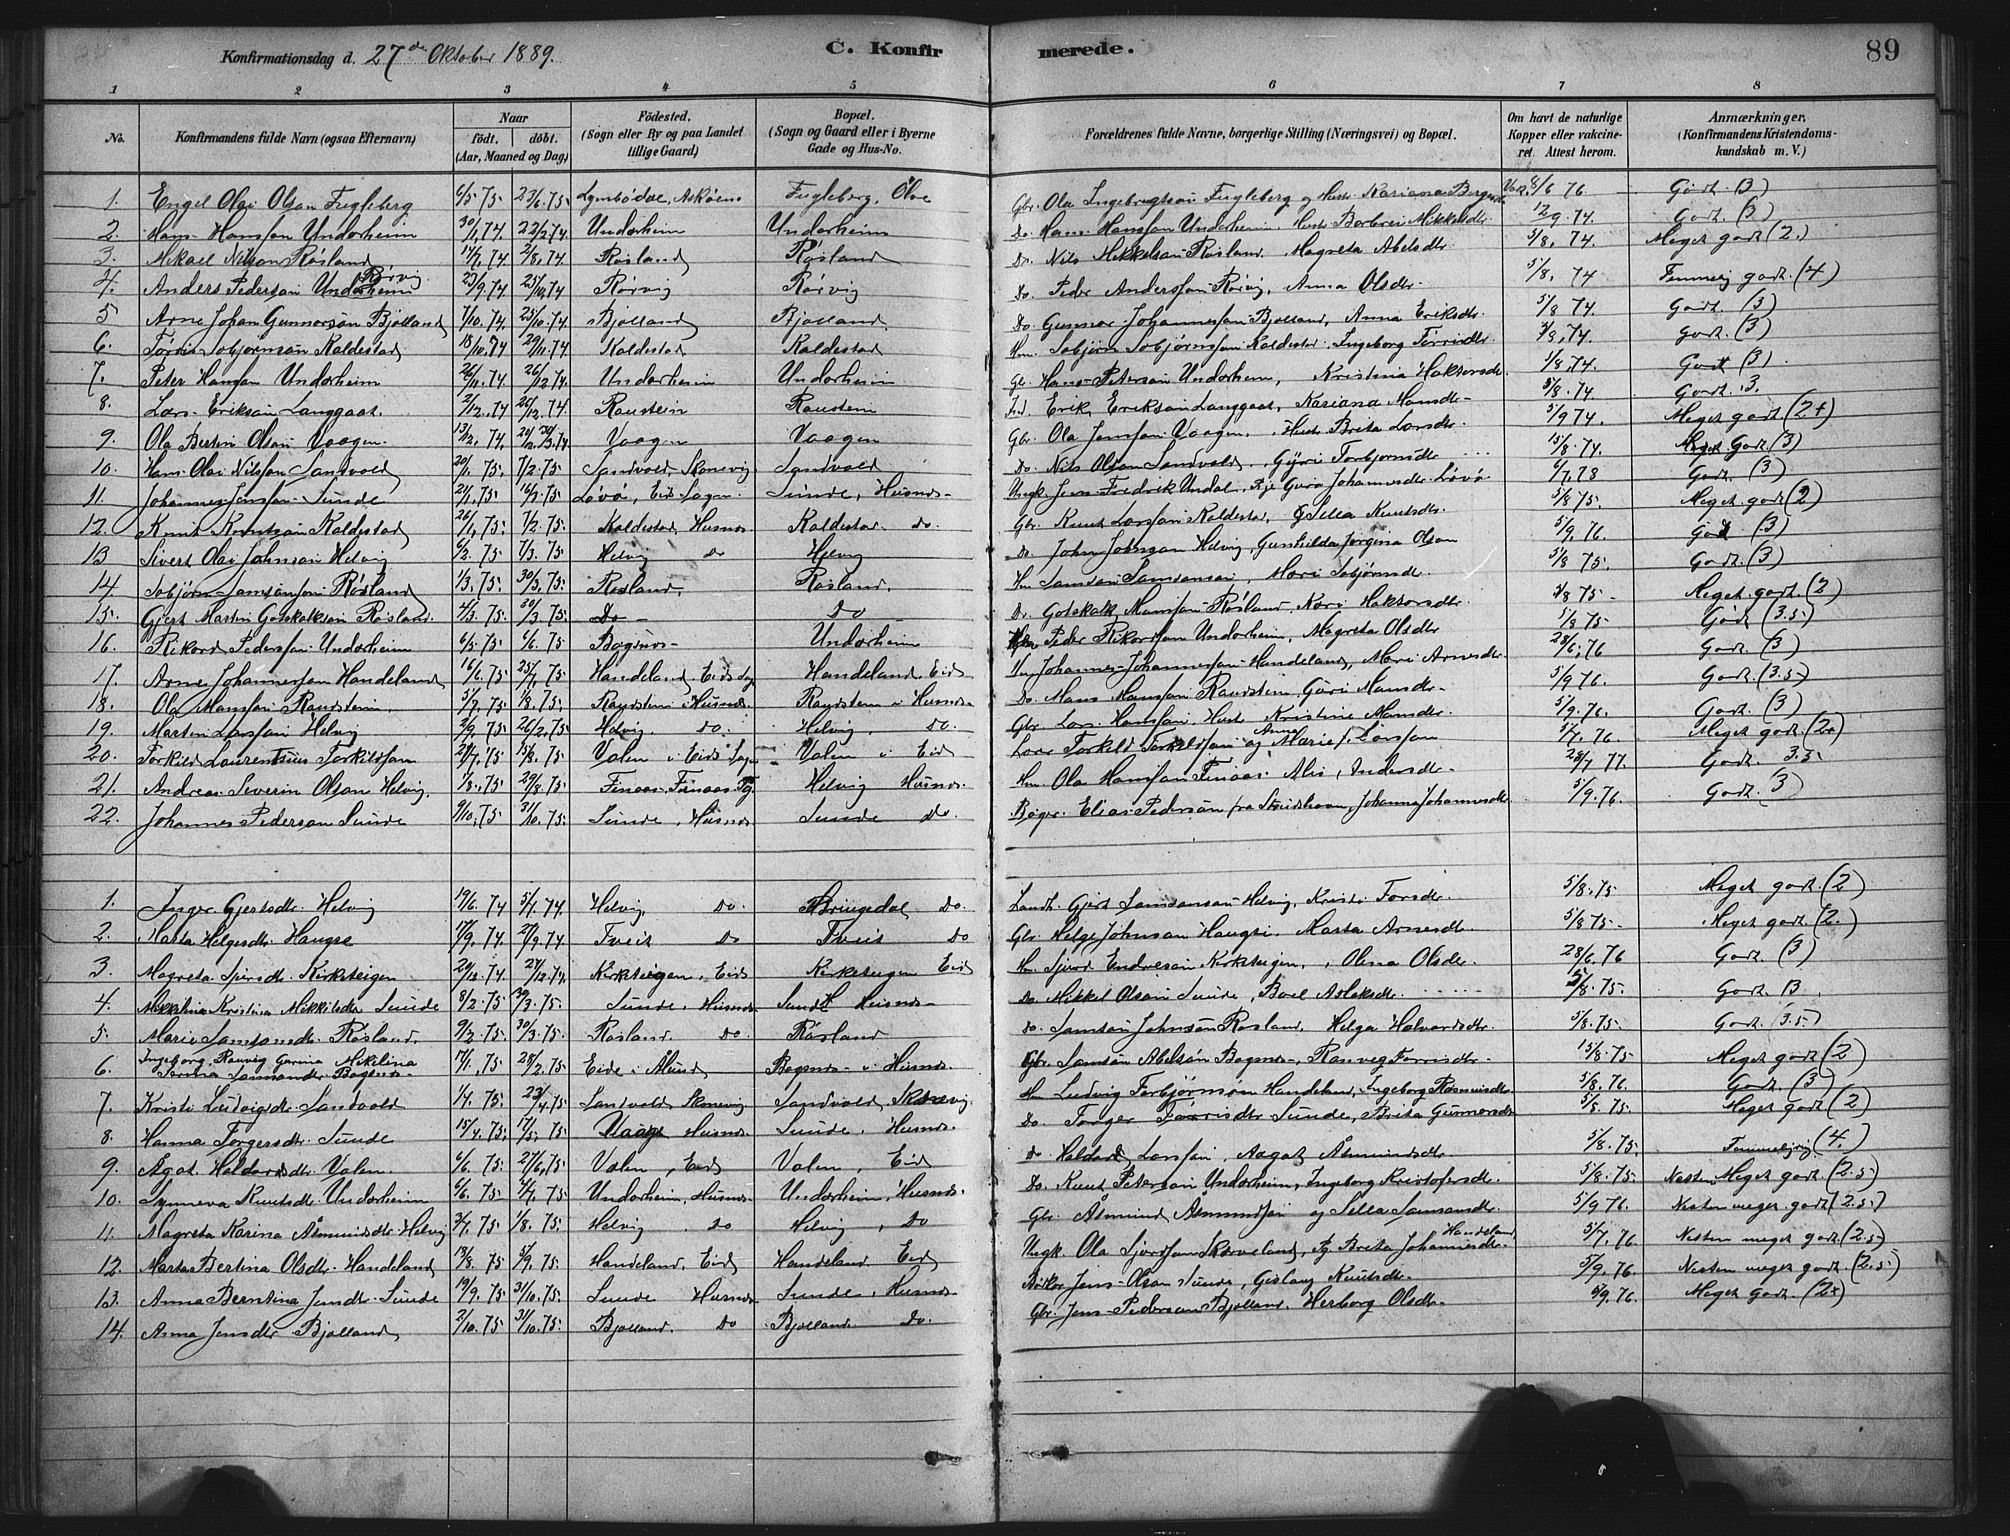 Konfirmationsdag d. 27de Oktober 1889. C. Konfir merede. 89
1 2 3 4 5 6 7 8
No. Konfirmandens fulde Navn (ogsaa Efternavn) Naar födt. döbt. (Aar, Maaned og Dag) Födested. (Sogn eller By og paa Landet tillige Gaard) Bopæl. (Sogn og Gaard eller i Byerne Gade og Hus-No. Forældrenes fulde Navne, borgerlige Stilling (Næringsvei) og Bopæl. Om havt de naturlige Kopper eller vakcineret. Attest herom. Anmærkninger. (Konfirmandens Kristendomskundskab m. V.)
1. Engel Olai Olsøn Fugleberg 6/5 75 23/6 75 Fugleberg, Ölve Gbr. Ola Ingebrigtsøn Fugleberg og Hust. Kariana 8/6 76 Godt (3)
2. Hans Hansøn Undarheim 30/1 74 22/2 74 Undarheim Undarheim Do. Hans Hansøn Undarheim, Hust. Mikkelsdtr. 12/9 74. Godt. (3)
3. Mikael Nilsøn Røsland 14/7 74. 2/8 74. Røsland Røsland Do. Nils Mikkelsøn Røsland Magreta Abelsdtr. 5/8, 74 Meget godt (2.)
4. Anders Pedersøn Undarheim Rørvig 23/9 74 25/10 74 Rørvig Rørvig Do. Peder Andersøn Rørvig, Anna Olsdtr. 5/8, 74 godt. (4)
5 Arne Johan Gunnarsøn Bjølland 7/10. 74. 25/10. 74. Bjølland Bjølland. Do. Gunnar Johannessøn Bjølland, Anna Eriksdtr. 5/8 74 Godt. (3)
6. Tørris Kaldestad 18/10. 74 29/11. 74 Kaldestad Kaldestad Kaldestad Ingeborg Tørrisdtr 74. godt. (3)
7. Peter Hansøn Undarheim 26/11. 74 26/12 74. Undarheim Undarheim Hans Petersøn Undarheim, Kristina Haktorsdtr. 74. Godt (3)
8. Lars Eriksøn Langgaat. 2/12. 74 26/12. 74. Raustein Raustein Erik Eriksøn Langgaat, Kariana Mansdtr. 5/8. 74 Godt. 3.
9. Ola Bertin Olsøn Vaagen. 13/12. 74 Vaagen Vaagen Gbr. Ola Jensøn Vaagen, Hust. Brita Larsdtr. 5/9 74. Meget godt. (2+)
10. Hans Olai Nilssøn Sandvold 20/1. 75. 7/2. 75. Sandvold, Skonevig Sandvold Do. Nils Olsøn Sandvold, Gyri Torbjørnsdtr. 15/8. 74. Godt (3)
11. Johannes Jensøn Sunde 21/1. 75. 75. Løvø, Eid Sogn. Sunde, Husnes Ungk. Jens Fredrik Undal, Johannesdtr. Løvø 6/7, 78 Godt. (3)
12. Knut Knutsøn Kaldestad 26/1. 75. 7/2. 75. Kaldestad, Husnes Kaldestad do. Gbr. Knut Larssøn Kaldestad, Knutsdtr. 5/8 75. Meget godt (2)
13 Sivert Olai Johnsøn Helvig 6/2. 75 7/3. 75 Helvig Do Helvig Do. John Johnsøn Helvig, Gunhilda Jørgina Olsøn 5/9. 76. Godt (3)
14. Samsonsøn Røsland 1/3. 75. 30/3. 75. Røsland. Røsland. Hm Samson Samsonsøn, Mari 5/8 75. Godt. (3)
15. Gjert Martin Gotskalksøn Røsland. 4/3. 75. 30/3. 75. Do Do D. Gotskalk Mansøn Røsland Kari Haktorsdtr. 5/8 75 Meget godt. (2)
16. Rikard Pedersøn Undarheim 6/5. 75 6/6. 75 Bogsnes Undarheim Peder Rikardsøn Undarheim, Magreta Olsdtr 75 Godt (3.5)
17. Arne Johannessøn Handeland 16/6. 75 25/7. 75 Handeland. Eids Sogn Handeland Eid Johannes Johannessøn Handeland, Mari Arnesdtr. 28/6. 76 Godt. (3)
18. Ola Mansøn Raustein. 5/7. 75 1/8. 75. Raustein i Husnes Raustein i Husnes Do. Mans Mansøn Raustein, Gûri Mansdtr. 5/9 76. Godt. (3.5)
19. Martin Larsøn Helvig 75 75 Helvig. Do. Helvig, Do. Gbr. Lars Hansøn. Hust. Kristine Mansdtr. 5/9. 76. Godt. (3)
20. Torkild Laurentsius Torkilsøn 21/7. 75 15/8. 75 Valen i Eids Sogn Valen i Eid Torkild Torkildsøn og Anna Marie Larsøn 5/7. 76 Meget godt (2+)
21. Andreas Severin Olsøn Helvig. 1/8. 75. 29/8. 75 Finaas, Finaas Helvig Husnes Hm. Ola Hansøn Finaas, Andersdtr. 28/7 77. Godt. 3.5
22. Johannes Pedersøn Sunde 9/10. 75 31/10. 75. Sunde, Husnes Sunde Do. Elias Pedersøn fra Johanna Johannesdtr. 5/9. 76. Godt. (3)
1. Inger Gjertsdtr. Helvig 19/6. 74 5/7. 74. Helvig, Do. Bringedal Do. Gjert Samsonsøn Helvig, Kristi Torsdtr. 5/8. 75 Meget godt. (2)
2. Marta Helgesdtr. Haugse 11/9. 74 27/9. 74 Tveit Do Tveit Do Gbr. Helge Johnsøn Haugse, Marta Arnesdtr. 5/8 75. Meget godt. (2.)
3. Magreta Kirksteigen 74 27/12 74 Kirksteigen, Eid Kirksteigen Eid Hm Sjurd Endresøn Kirksteigen, Olina Olsdtr. 28/6. 76 Godt. (3)
4. Mikkeline Kristina Mikkelsdtr Sunde 8/2. 75 30/3. 75. Sunde, Husnes Sunde Husnes Do. Mikkel Olsøn Sunde, Boel Aslaksdtr. 5/8. 75. Godt. 3.
5. Marie Samsonsdtr. Røsland. 9/2. 75. 30/3. 75. Røsland. Do. Røsland Do. Samson Johnsøn Røsland. Helga Halvardsdtr. 5/8. 75. Godt. (3.5)
6. Ingeborg Rauvig Garina Mikelina Samsonsdtr. Bogsnes 75 28/2. 75 Eide i Ålund Bogsnes i Husnes Gbr. Samson Abelsøn Bogsnes, Rauveg Tørrisdtr. 15/8. 75 Meget godt (2)
7. Kristi Ludvigsdtr. Sandvold 1/4. 75. 23/4. 75 Sandvold, Skonevig Sandvold, Skonevig Hm Ludvig Torbjørnsøn Handeland, Ingeborg Rasmusdtr. 5/8. 76. Godt. (3)
8. Hanna Torgersdtr. Sunde 15/4. 75. 17/5. 75 Vaage Husnes Sunde, Husnes Do. Torger Sunde, Brita Gunnarsdtr 5/8. 75. Meget godt (2)
9. Ågat. Haldorsdtr. Valen. 6/6. 75 27/6. 75 Valen, Eid Valen, Eid Do Haldor Larsøn, Aagat Åsmundsdtr 5/8. 75. (4.)
10. Synneva Knutsdtr. Undarheim 6/6. 75 4/7. 75 Undarheim, Husnes Undarheim, Husnes. Do. Knut Petersøn Undarheim, Ingeborg Kristofersdtr. 5/8. 75. Nesten Meget godt (2.5)
11. Magreta Karina Åsmundsdtr Helvig 3/7. 75 1/8. 75. Helvig, Do Helvig, Do Gbr. Åsmund Åsmundsøn og Silla Samsonsdtr 5/9 76. Nesten meget godt (2.5)
12. Marta Bertina Olsdtr. Handeland 13/8. 75 5/9. 75. Handeland, Eid Handeland Eid Ungk. Ola Sjursøn Skorveland, Pg. Brita Johannesdtr. Handeland 5/7, 76 Nesten meget godt (2.5)
13. Anna Berntina Jensdtr. Sunde 19/9. 75 31/10. 75. Sunde Husnes Sunde, Husnes Jens Olsøn Sunde, Geslaug Knutsdtr. 5/9. 76 Nesten meget godt (2.5)
14. Anna Jensdtr Bjølland 2/10. 75 31/10. 75. Bjølland. Do Bjølland Do. Gbr. Jens Pedersøn Bjølland. Herborg Olsdtr. 5/9. 76. Meget Godt. (2+)